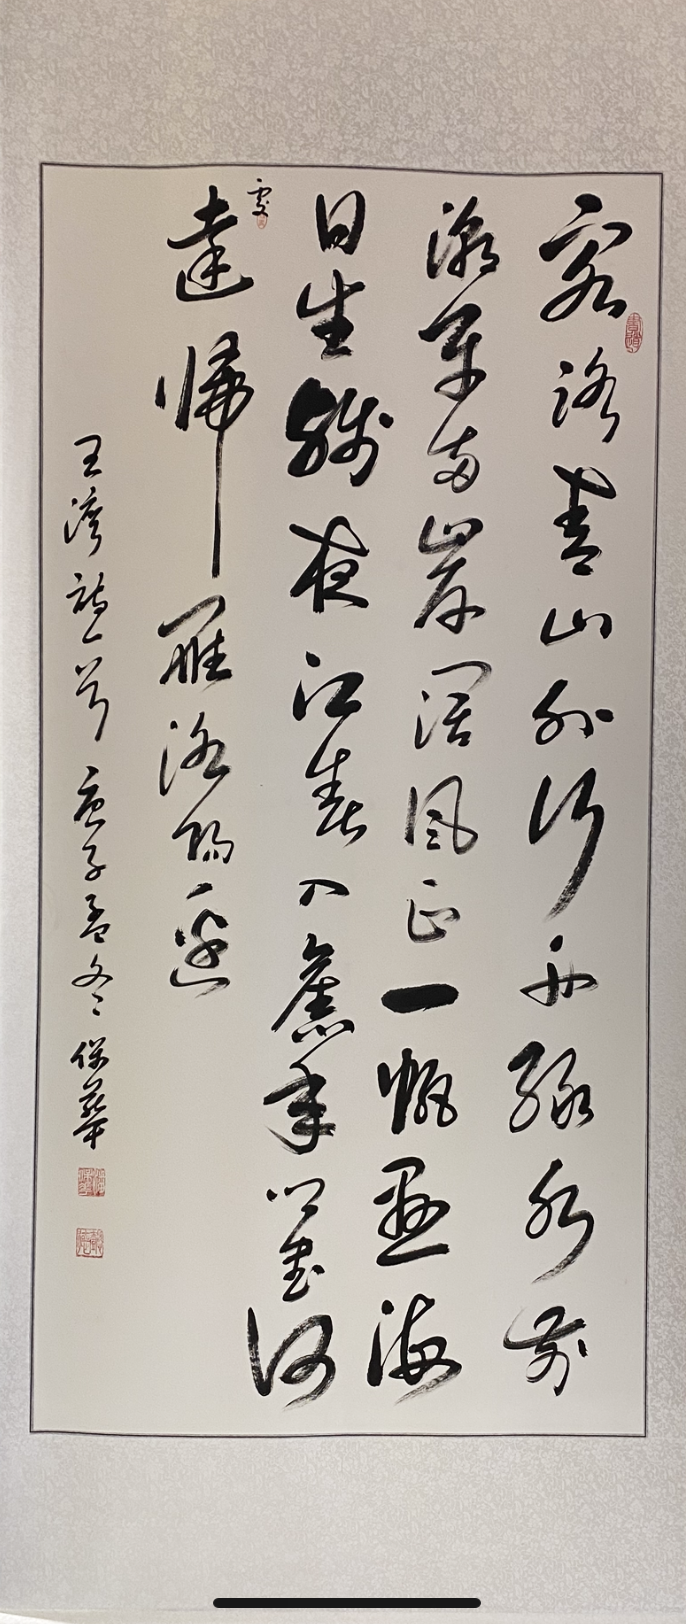 客路青山外行舟綠水前
潮平兩岸闊風正一帆懸海
日生殘夜江春入舊年鄉書何
處
達歸雁洛陽邊
王灣詩一首 庚子孟冬 保華